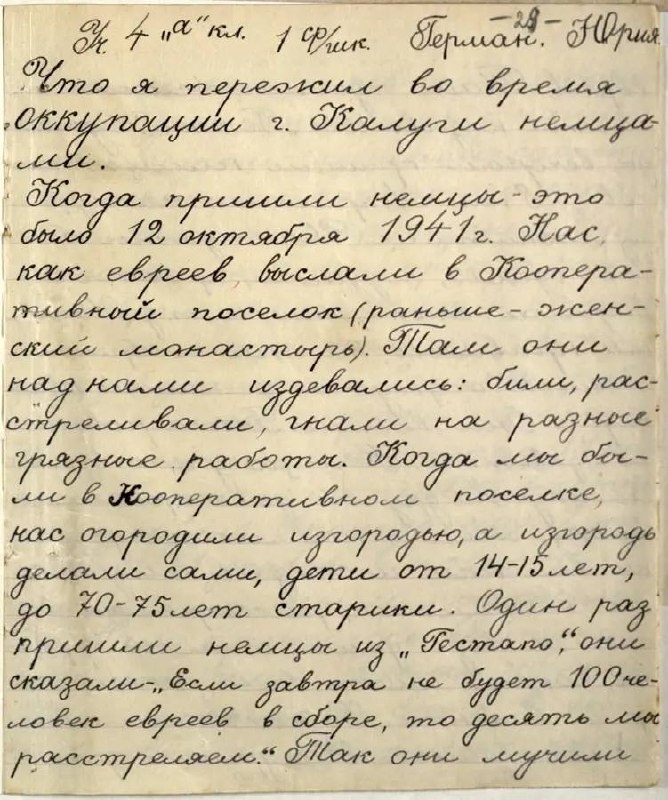 -29-
Уч. 4 „а" кл. 1 ф/шк. Герман. Юрия.
Что я пережил во время
оккупации г. Калуги немца-
ми.
Когда пришли немцы - это
было 12 октября 1941 г. Нас,
как евреев, выслали в Коопера-
тивный поселок (раньше - жен-
ский монастырь). Там они
над нами издевались: били, рас-
стреливали, гнали на разные
грязные работы. Когда мы бы-
ли в Кооперативном поселке,
нас огородили изгородью, а изгородь
делали сами, дети от 14-15 лет,
до 70-75 лет старики. Один раз
пришли немцы из „Гестапо", они
сказали - „Если завтра не будет 100 че-
ловек евреев в сборе, то десять мы
расстреляем." Так они мучили